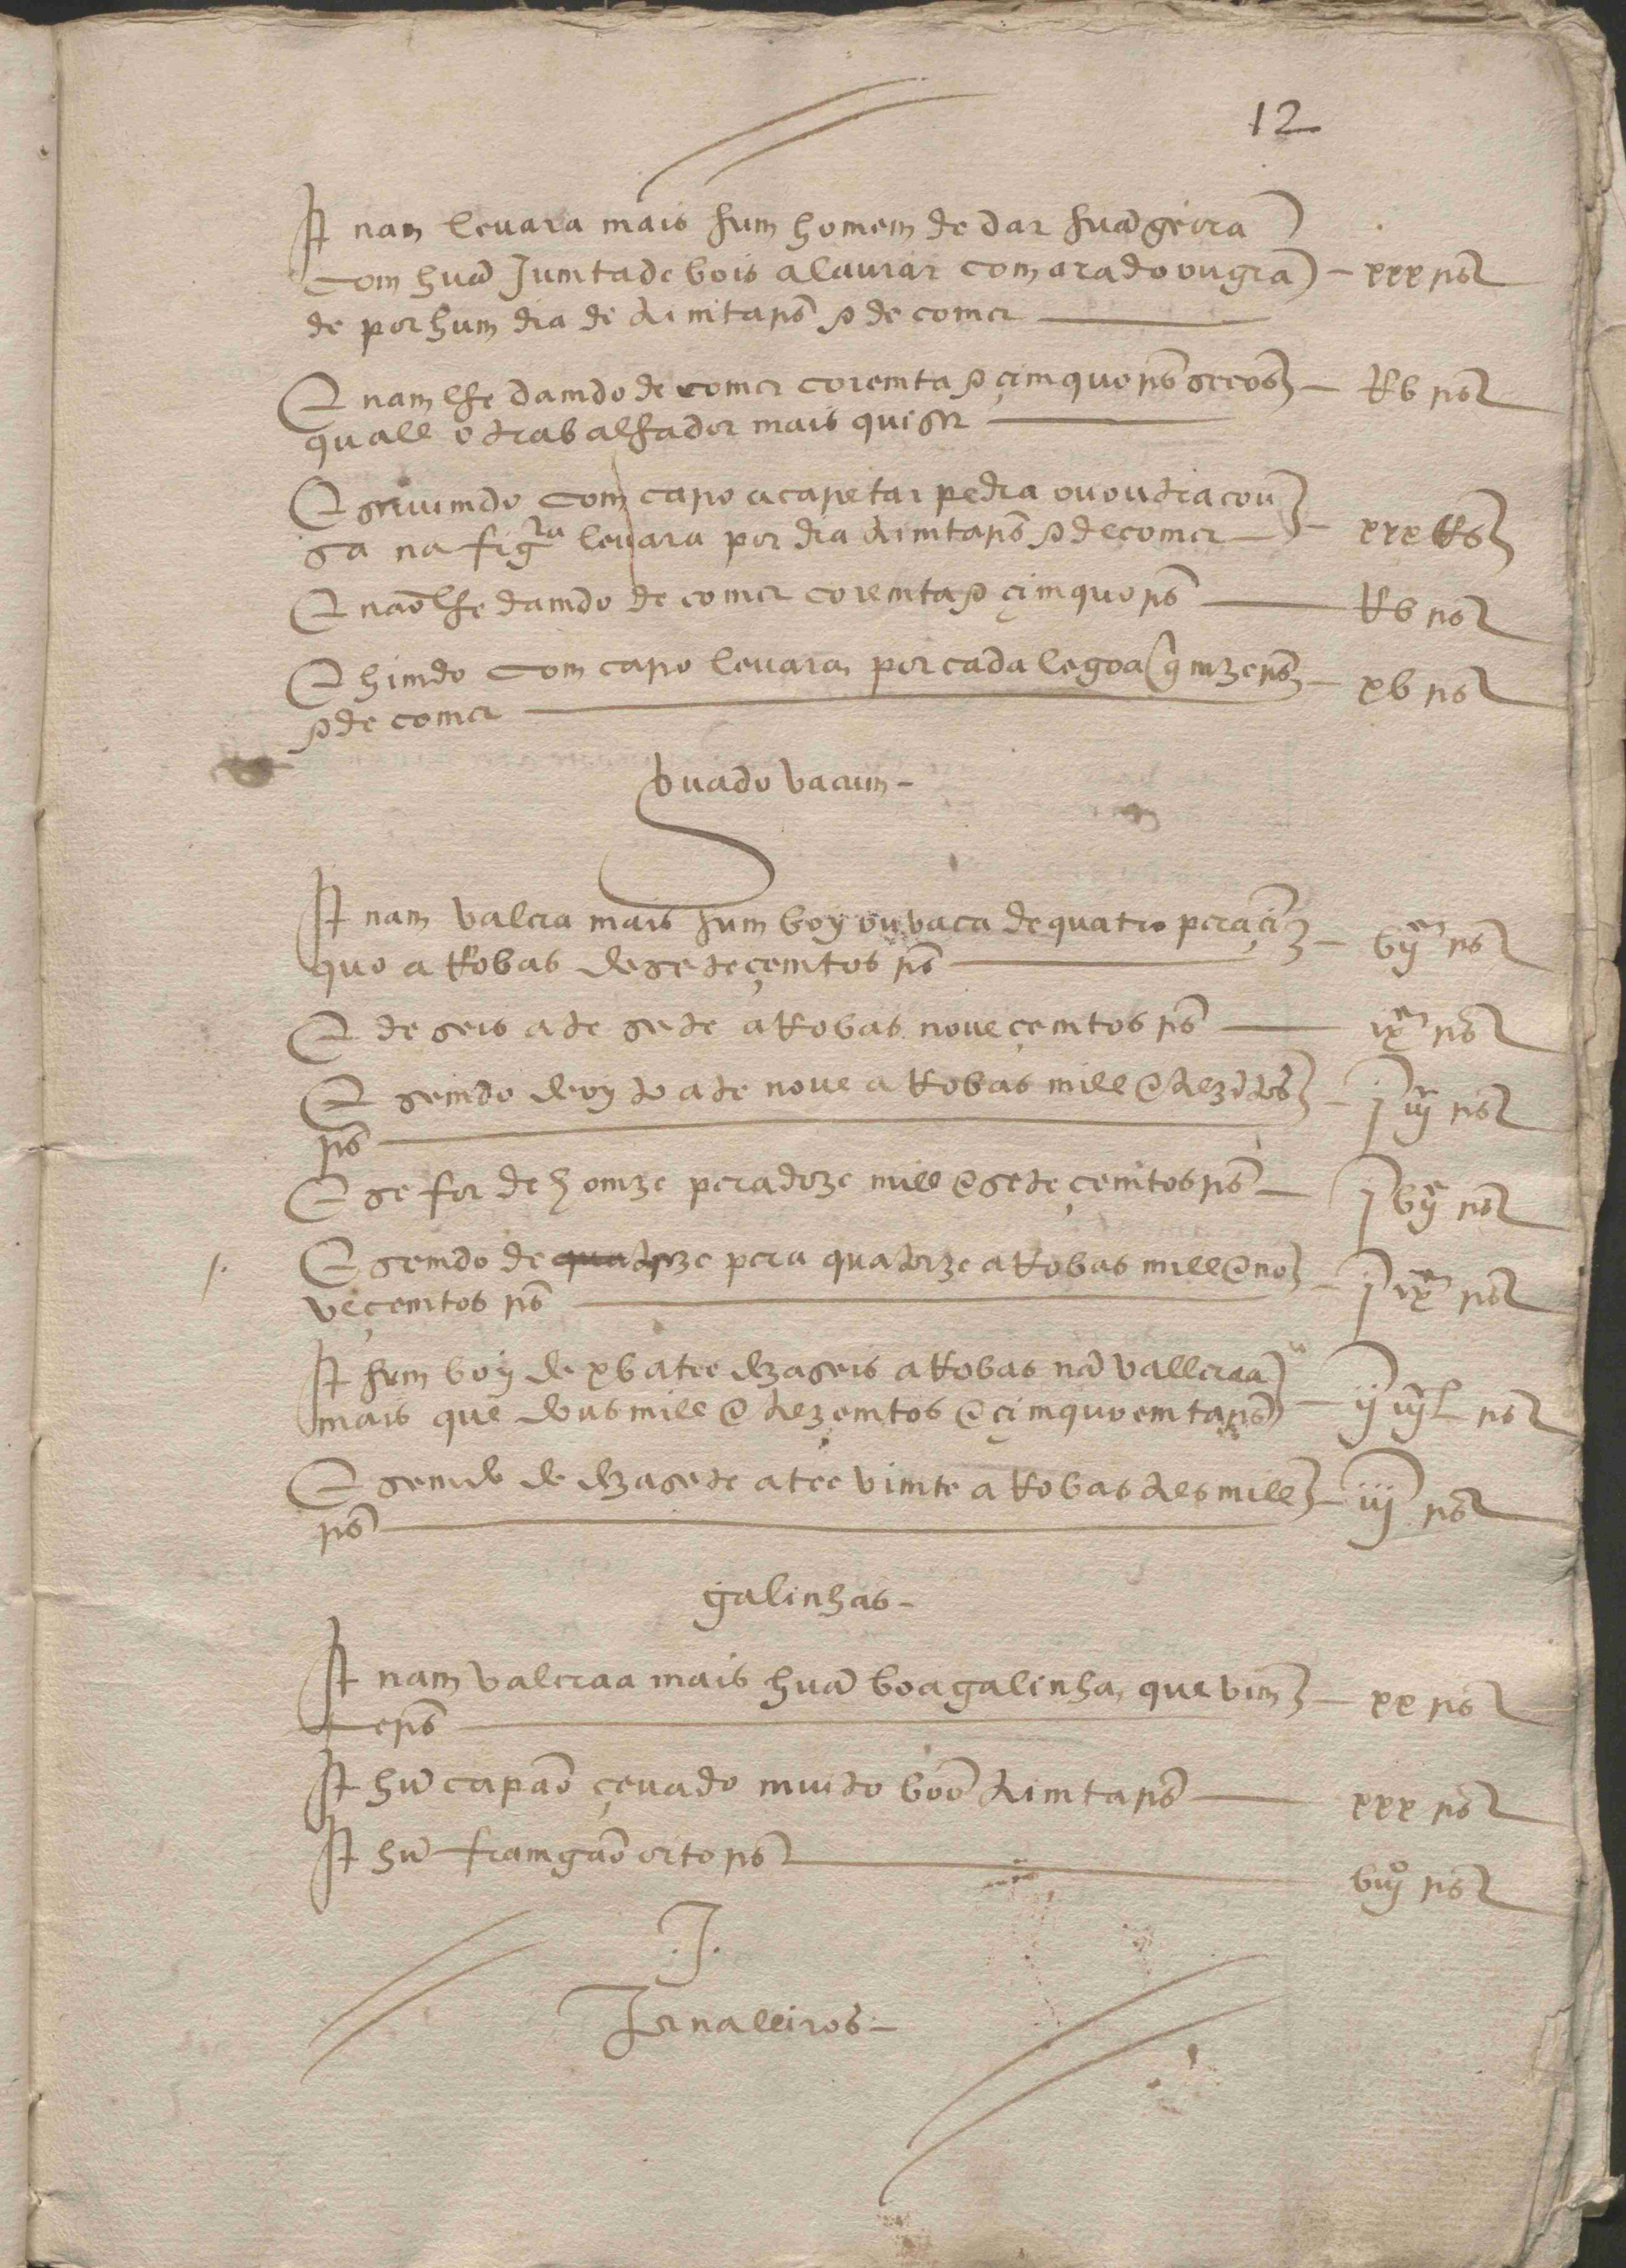 12
It nam leuara mais hum homem de dar huã geira
com huã Jumta de bois a laurar com arado ou gra
de por hum dia de trimta rs̃ & de comer — xxx rs
E nam lhe damdo de comer coremta & çimquo rs̃ secos — Rb rs
quall o trabalhador mais quiser
E seruimdo com caro a caretar pedra ou outra cou
sa na figra leuara por dia trimta rs̃ & de comer — xxx Rs
E não lhe damdo de comer coremta & çimquo rs̃ — Rb rs
E himdo com caro leuara por cada legoa quimze rs̃ — xb rs
& de comer
guado vacum -
It nam valera mais hum boy ou vaca de quatro pera çĩ
quo aRobas de seteçemtos rs̃ — bijᶜ rs
E de seis ate sete aRobas noueçemtos rs̃ — ixᶜ rs
E semdo de oyto ate noue aRobas mill & trezẽtos — j iijᶜ rs
rs̃
E se for de homze pera doze mill & seteçemtos rs̃ — j bijᶜ rs
E semdo de quatorze pera quatorze aRobas mill & no — j ixᶜ rs
veçemtos rs̃
It hum boy de xb atee dzaseis aRobas nã valleraa
mais que dous mill & trezemtos & çimquoemta rs̃ — ij iijᶜ L rs
E semdo de dzasete atee vimte aRobas tres mill — iij rs
rs̃
galinhas -
It nam valeraa mais huã boa galinha, que vim — xx rs
te rs̃
It hũ capão çeuado muito boõ trimta rs̃ — xxx rs
It hũ framgão oito rs — biijº rs
.J.
Jornalleiros -